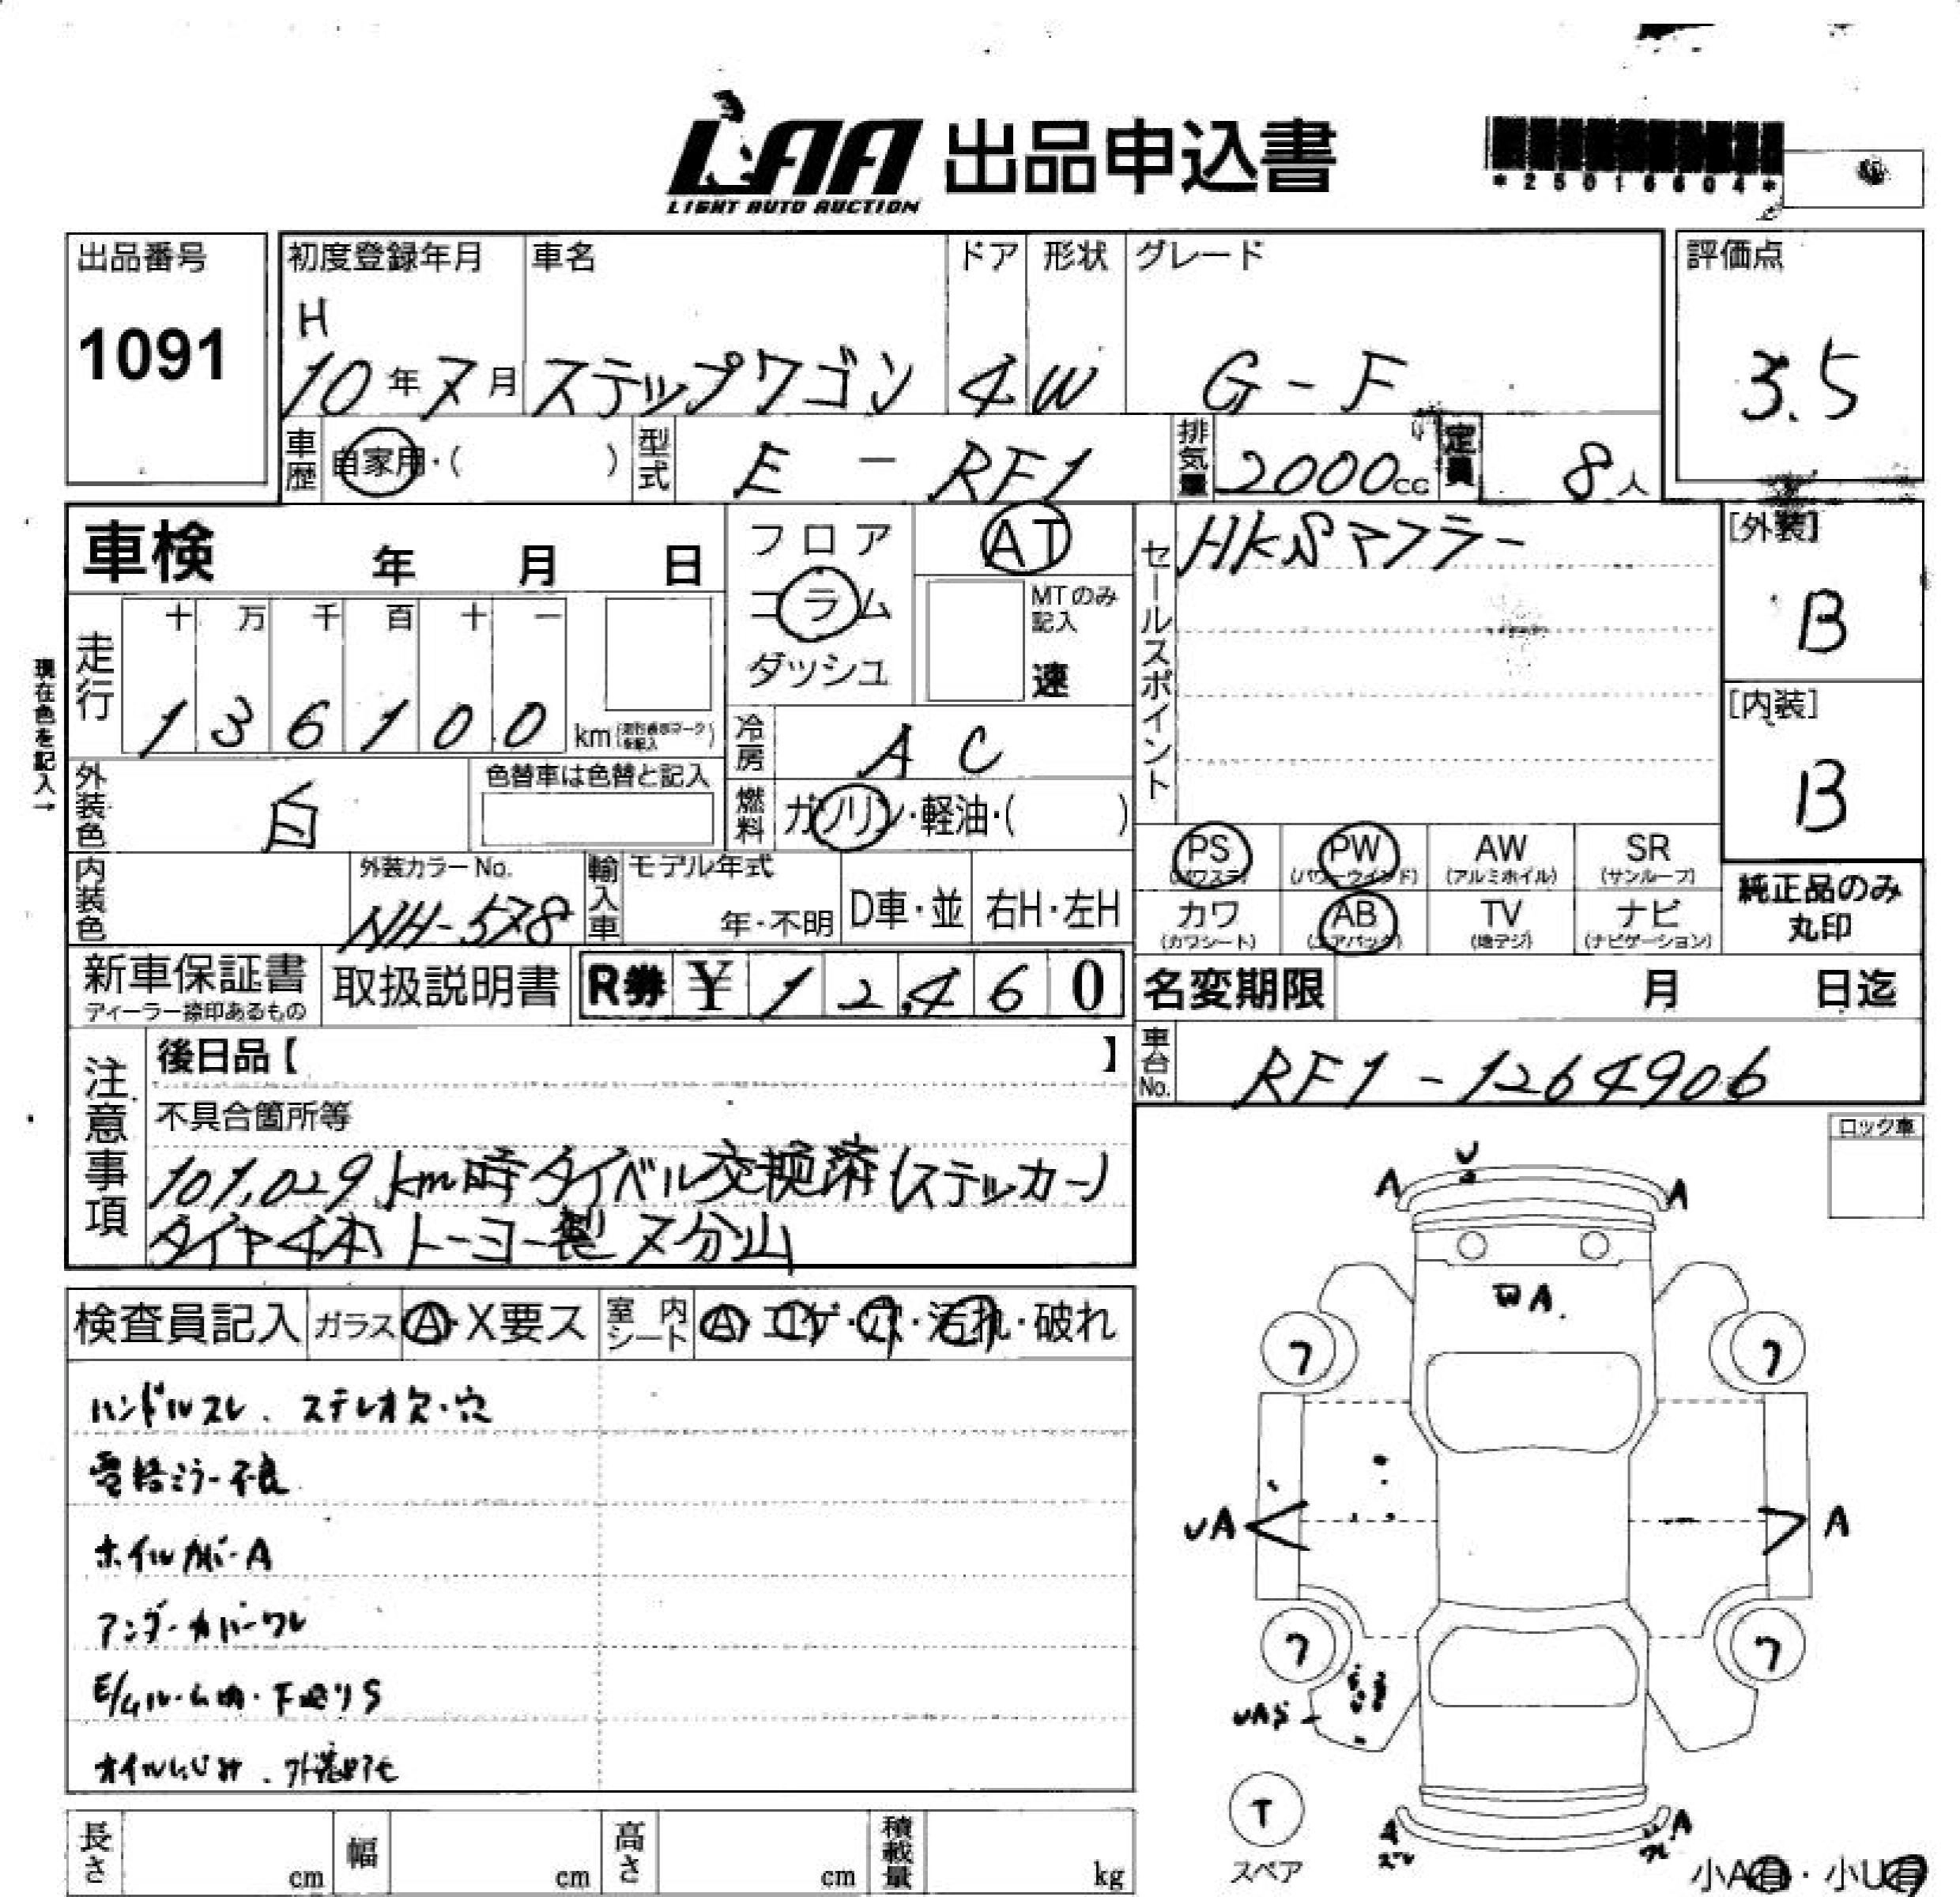 LAA 出品申込書
LIGHT AUTO AUCTION
*25016604*
出品番号
1091
初度登録年月 車名 ドア 形状 グレード
H
10年7月 ステップワゴン 4 W G-F
評価点
3.5
車歴 自家用・( ) 型式 E-RF1 排気量 2000cc 定員 8人
車検 年 月 日
フロア
コラム
ダッシュ
AT
MTのみ記入
速
現在色を記入→
走行 十 万 千 百 十 一
1 3 6 1 0 0 km
冷房 AC
外装色 白 色替車は色替と記入
燃料 ガソリン・軽油・( )
セールスポイント
HKSマフラー
[外装]
B
[内装]
B
PS PW AW SR
(パワステ) (パワーウインド) (アルミホイル) (サンルーフ)
カワ AB TV ナビ
(カワシート) (エアバッグ) (地デジ) (ナビゲーション)
純正品のみ
丸印
内装色 外装カラーNo. NH-578
輸入車 モデル年式 年・不明 D車・並 右H・左H
新車保証書 取扱説明書 R券 ¥ 1 2,4 6 0
ディーラー捺印あるもの
名変期限 月 日迄
車台No. RF1-1264906
注意事項
後日品【 】
不具合箇所等
101,029km時タイベル交換済(ステッカー)
タイヤ4本トーヨー製7分山
検査員記入 ガラス A・X要ス 室内シート A・コゲ・穴・汚れ・破れ
ハンドルスレ、ステレオ欠・穴
電格ミラー不良
ホイルカバーA
アンダーカバーワレ
E/gルーム内・下廻りS
オイルにじみ、
ロック車
U
A A
A.
7 7
UA A
7 7
UAS
T
スペア
A A
小A有・小U有
長さ cm 幅 cm 高さ cm 積載量 kg